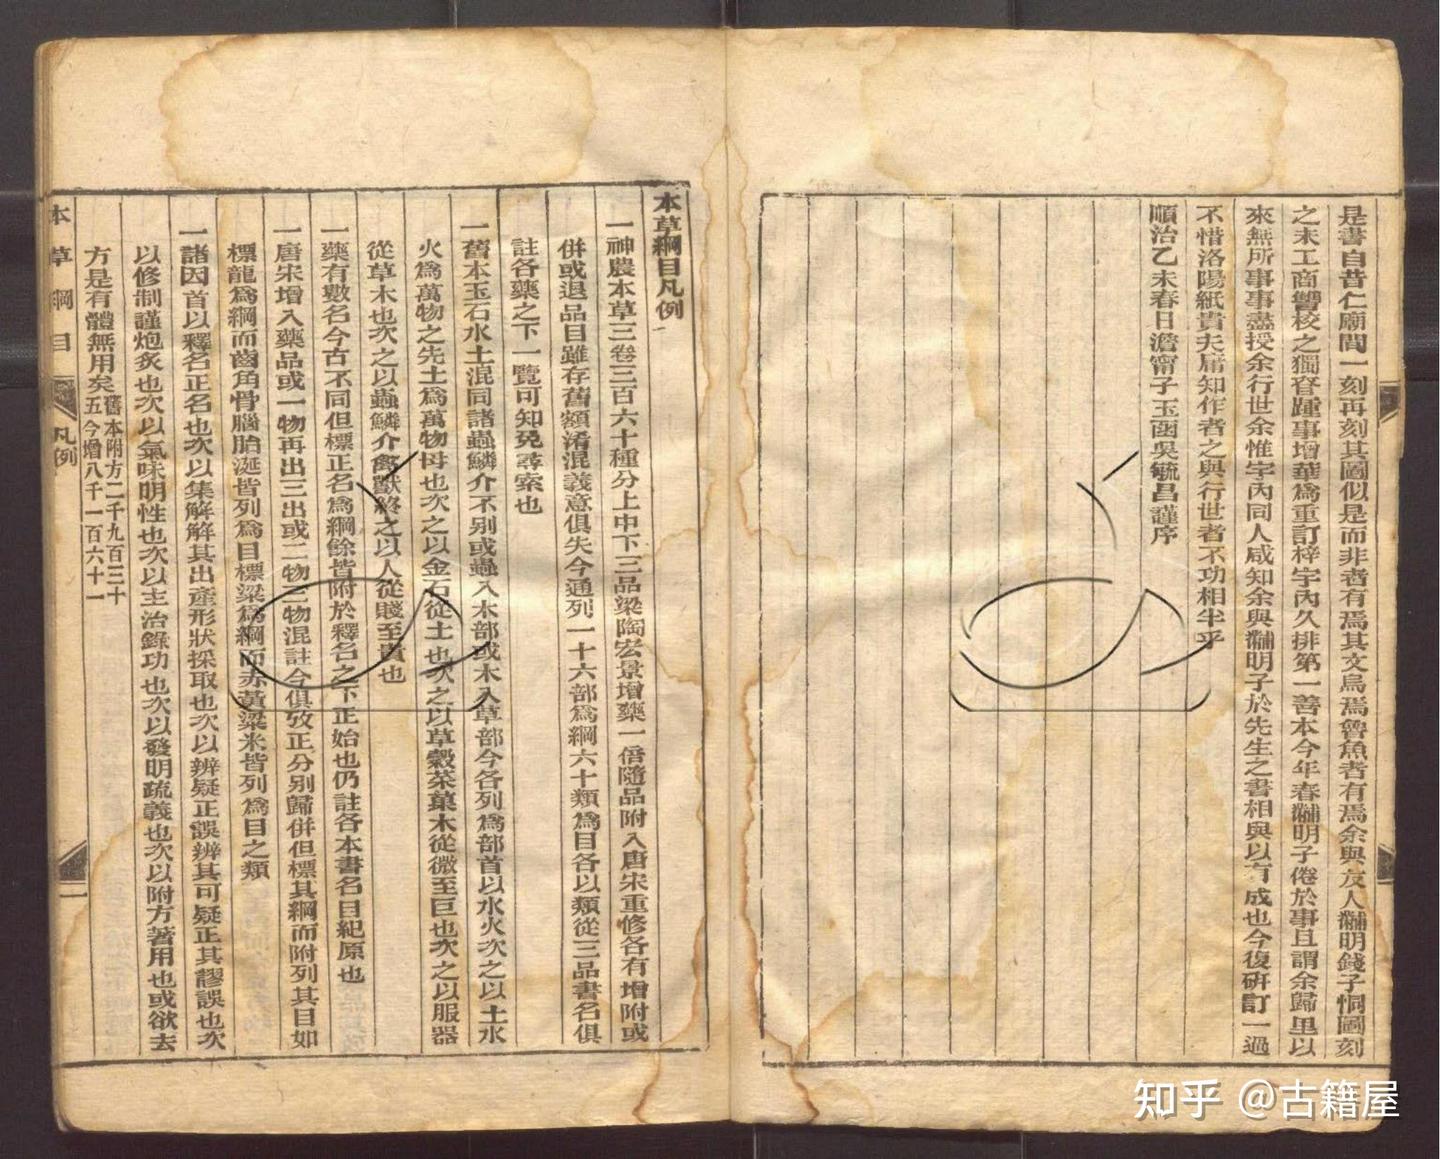 是書自昔仁廟間一刻再刻其圖似是而非者有焉其文烏焉魯魚者有焉余與友人黼明錢子恫圖刻
之未工商讐校之獨脊踵事增華為重訂梓宇內久排第一善本今年春黼明子倦於事且謂余歸里以
來無所事事盡授余行世余惟宇內同人咸知余與黼明子於先生之書相與以有成也今復硏訂一過
不惜洛陽紙貴夫庸知作者之與行世者不功相半乎
順治乙未春日澹甯子玉函吳毓昌謹序
本草綱目凡例
一神農本草三卷三百六十種分上中下三品梁陶宏景增藥一倍隨品附入唐宋重修各有增附或
併或退品目雖存舊額淆混義意俱失今通列一十六部為綱六十類為目各以類從三品書名俱
註各藥之下一覽可知免尋索也
一舊本玉石水土混同諸蟲鱗介不別或蟲入木部或木入草部今各列為部首以水火次之以土水
火為萬物之先土為萬物母也次之以金石從土也次之以草穀菜菓木從微至巨也次之以服器
從草木也次之以蟲鱗介禽獸終之以人從賤至貴也
一藥有數名今古不同但標正名為綱餘皆附於釋名之下正始也仍註各本書名目紀原也
一唐宋增入藥品或一物再出三出或二物三物混註今俱攷正分別歸併但標其綱而附列其目如
標龍為綱而齒角骨腦胎涎皆列為目標粱為綱而赤黃粱米皆列為目之類
一諸因首以釋名正名也次以集解解其出產形狀採取也次以辨疑正誤辨其可疑正其謬誤也次
以修制謹炮炙也次以氣味明性也次以主治錄功也次以發明疏義也次以附方著用也或欲去
方是有體無用矣舊本附方二千九百三十五今增八千一百六十一
本草綱目 凡例 一
知乎 @古籍屋